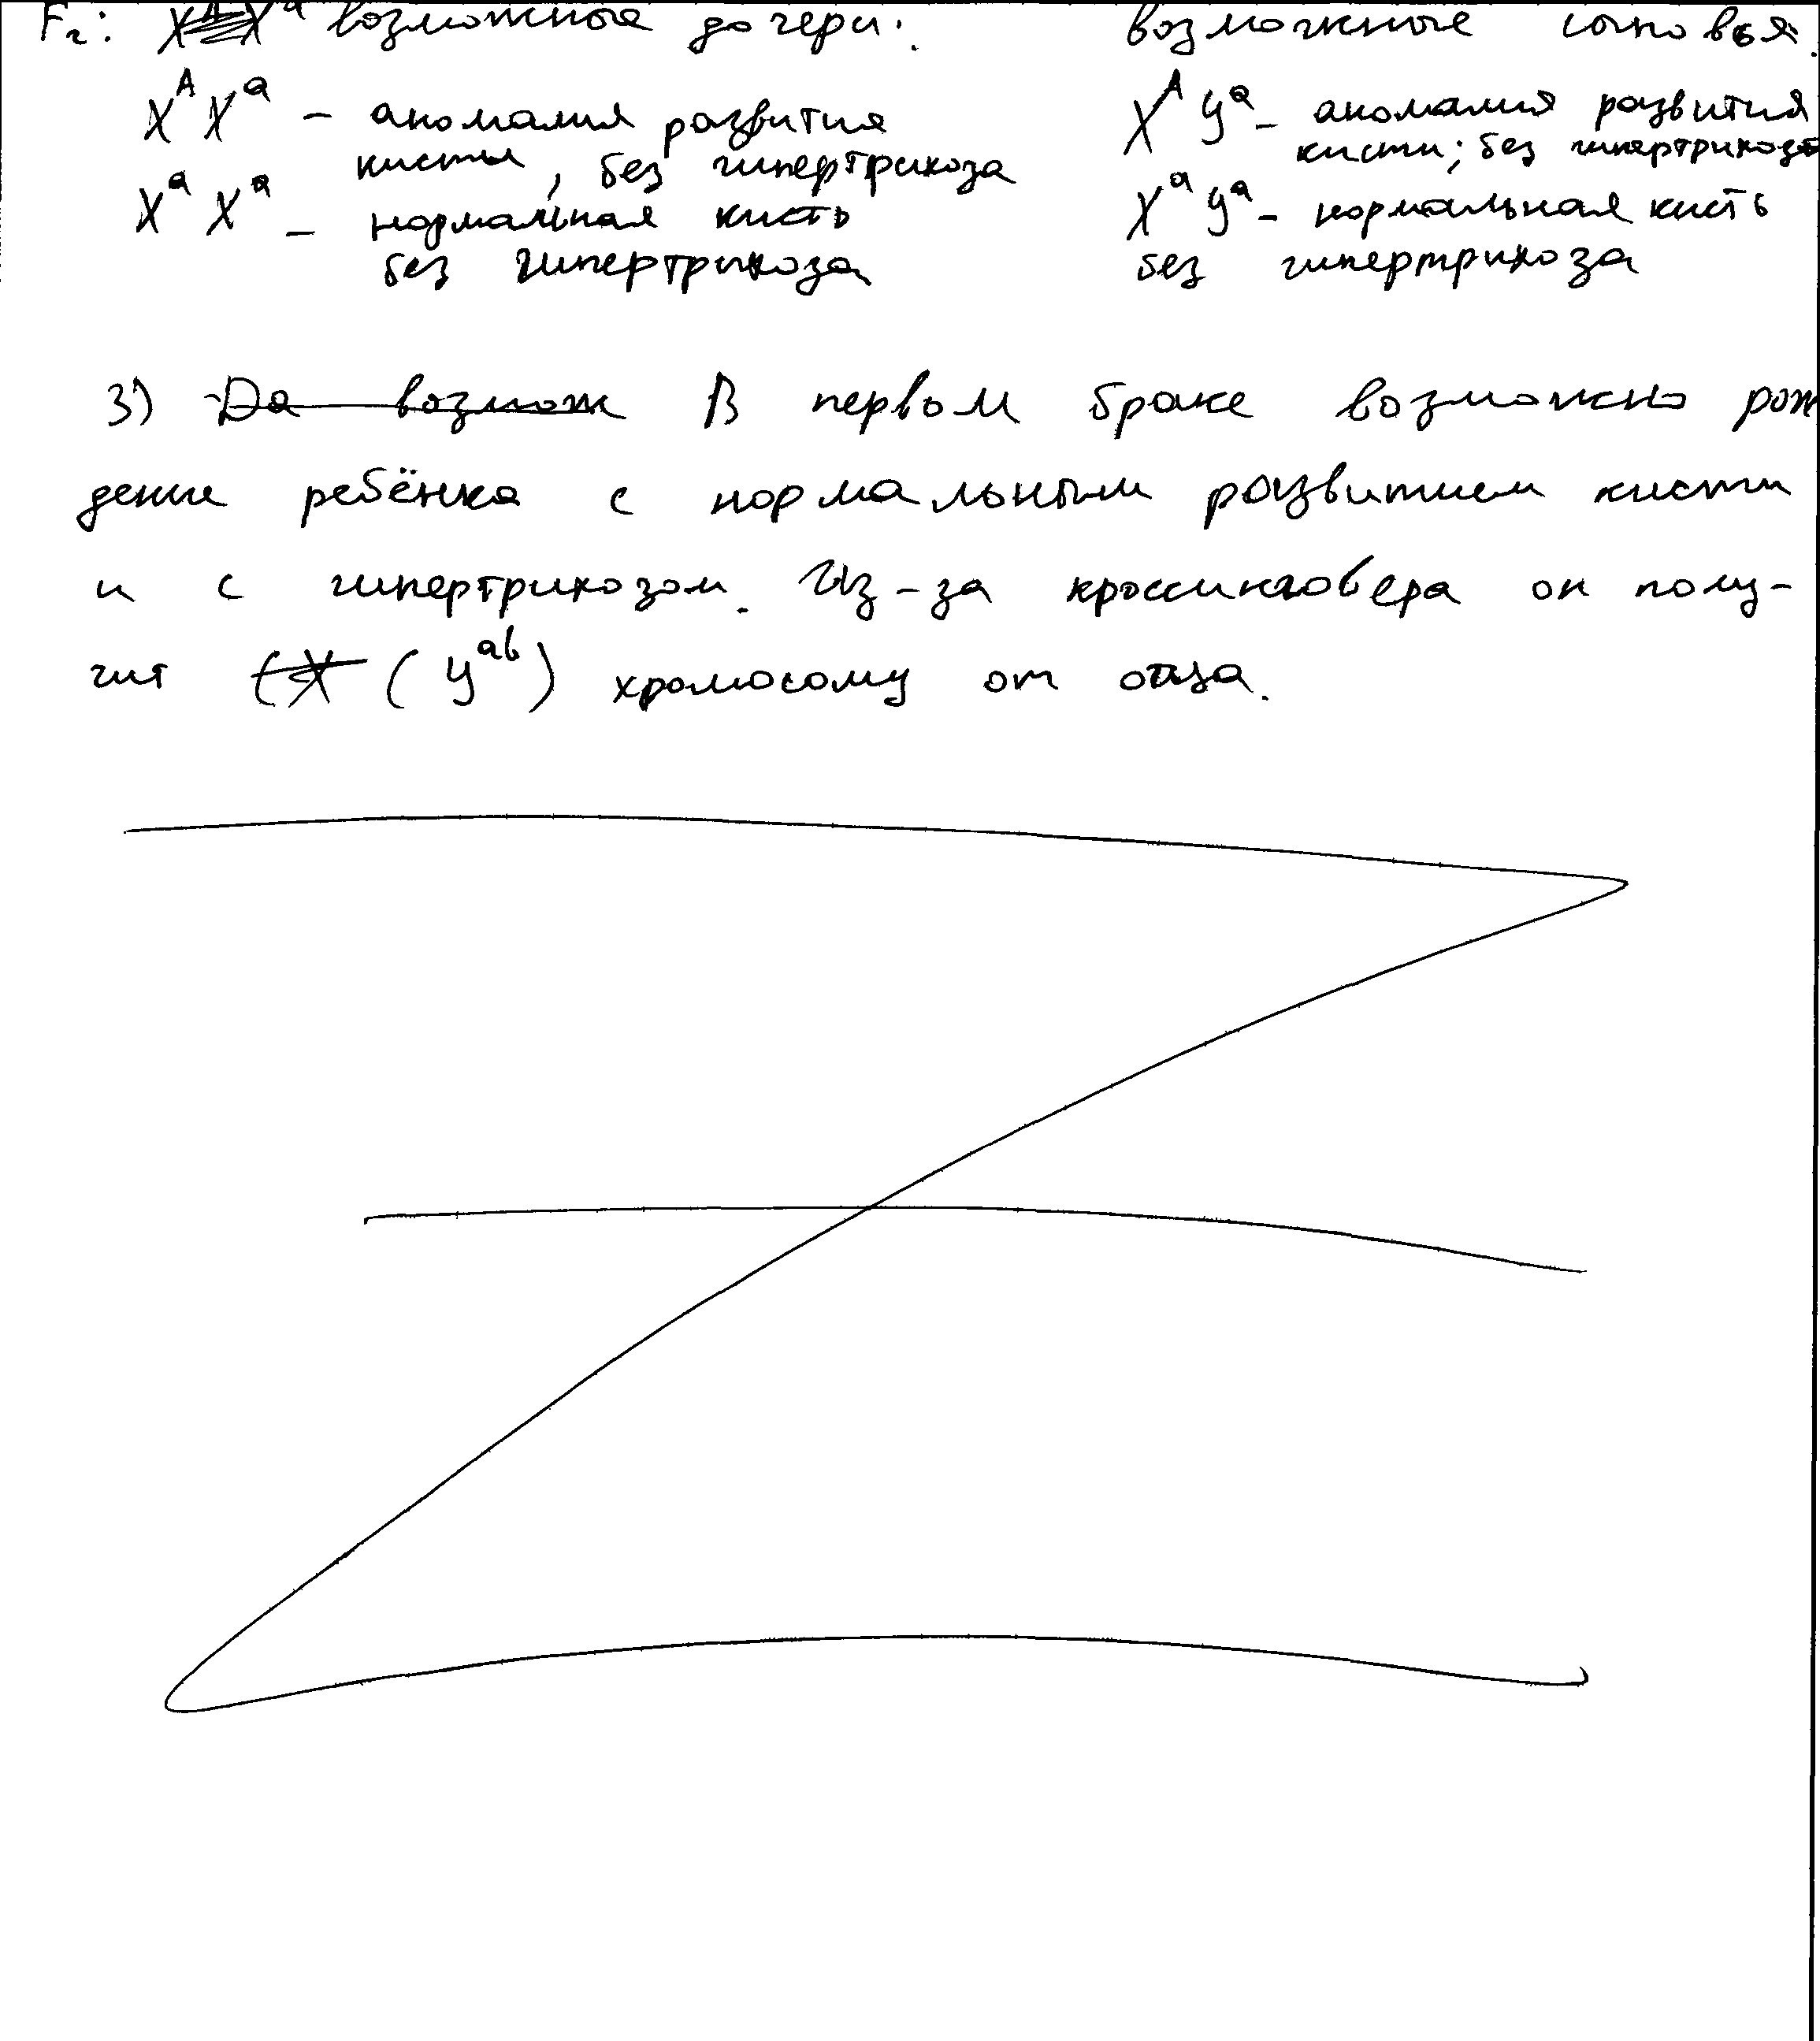 F₂: возможные дочери: возможные сыновья.
X^A X^a – аномалия развития
кисты, без гипертрихоза
X^a X^a – нормальная кисть
без гипертрихоза
X^A У^a – аномалия развития
кисти; без гипертрихоза
X^a У^a – нормальная кисть
без гипертрихоза
3) Да возмож В первом браке возможно рож
дение ребёнка с нормальным развитием кисти
и с гипертрихозом. Из-за кроссинговера он полу-
чит (X (У^ab) хромосому от отца.